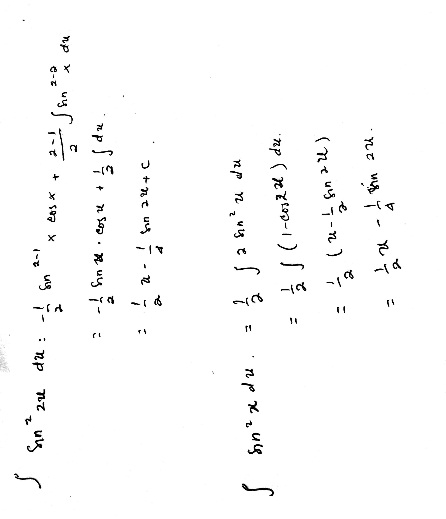 ∫ sin² x dx = -1/2 sin²⁻¹ x cos x + (2-1)/2 ∫ sin²⁻² x dx
= -1/2 sin x · cos x + 1/2 ∫ dx.
= 1/2 x - 1/4 sin 2x + c
∫ sin² x dx. = 1/2 ∫ 2 sin² x dx
= 1/2 ∫ (1-cos2x) dx.
= 1/2 (x - 1/2 sin 2x)
= 1/2 x - 1/4 sin 2x.